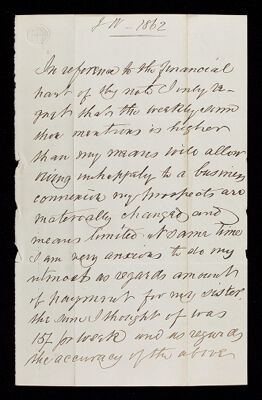 J N - 1862
In reference to the financial
part of thy note I only re-
gret that the weekly sum
thou mentions is higher
than my means will allow
owing unhappily to a business
connexion my prospects are
materially changed and
means limited. At same time
I am very anxious to do my
utmost as regards amount
of payment for my sister,
the sum I thought of was
15/- per week and as regards
the accuracy of the above